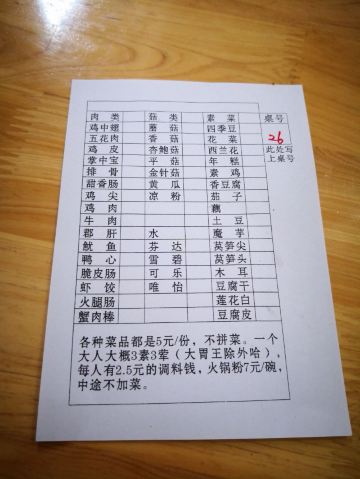 肉 类 菇 类 素 菜 桌号
鸡中翅 蘑 菇 四季豆 26
五花肉 香 菇 花 菜
鸡 皮 杏鲍菇 西兰花 此处写
掌中宝 平 菇 年 糕 上桌号
排 骨 金针菇 素 鸡
甜香肠 黄 瓜 香豆腐
鸡 尖 凉 粉 茄 子
鸡 肉 藕
牛 肉 土 豆
郡 肝 水 魔 芋
鱿 鱼 芬 达 莴笋尖
鸭 心 雪 碧 莴笋头
脆皮肠 可 乐 木 耳
虾 饺 唯 怡 豆腐干
火腿肠 莲花白
蟹肉棒 豆腐皮
各种菜品都是5元/份，不拼菜。一个
大人大概3素3荤（大胃王除外哈），
每人有2.5元的调料钱，火锅粉7元/碗，
中途不加菜。